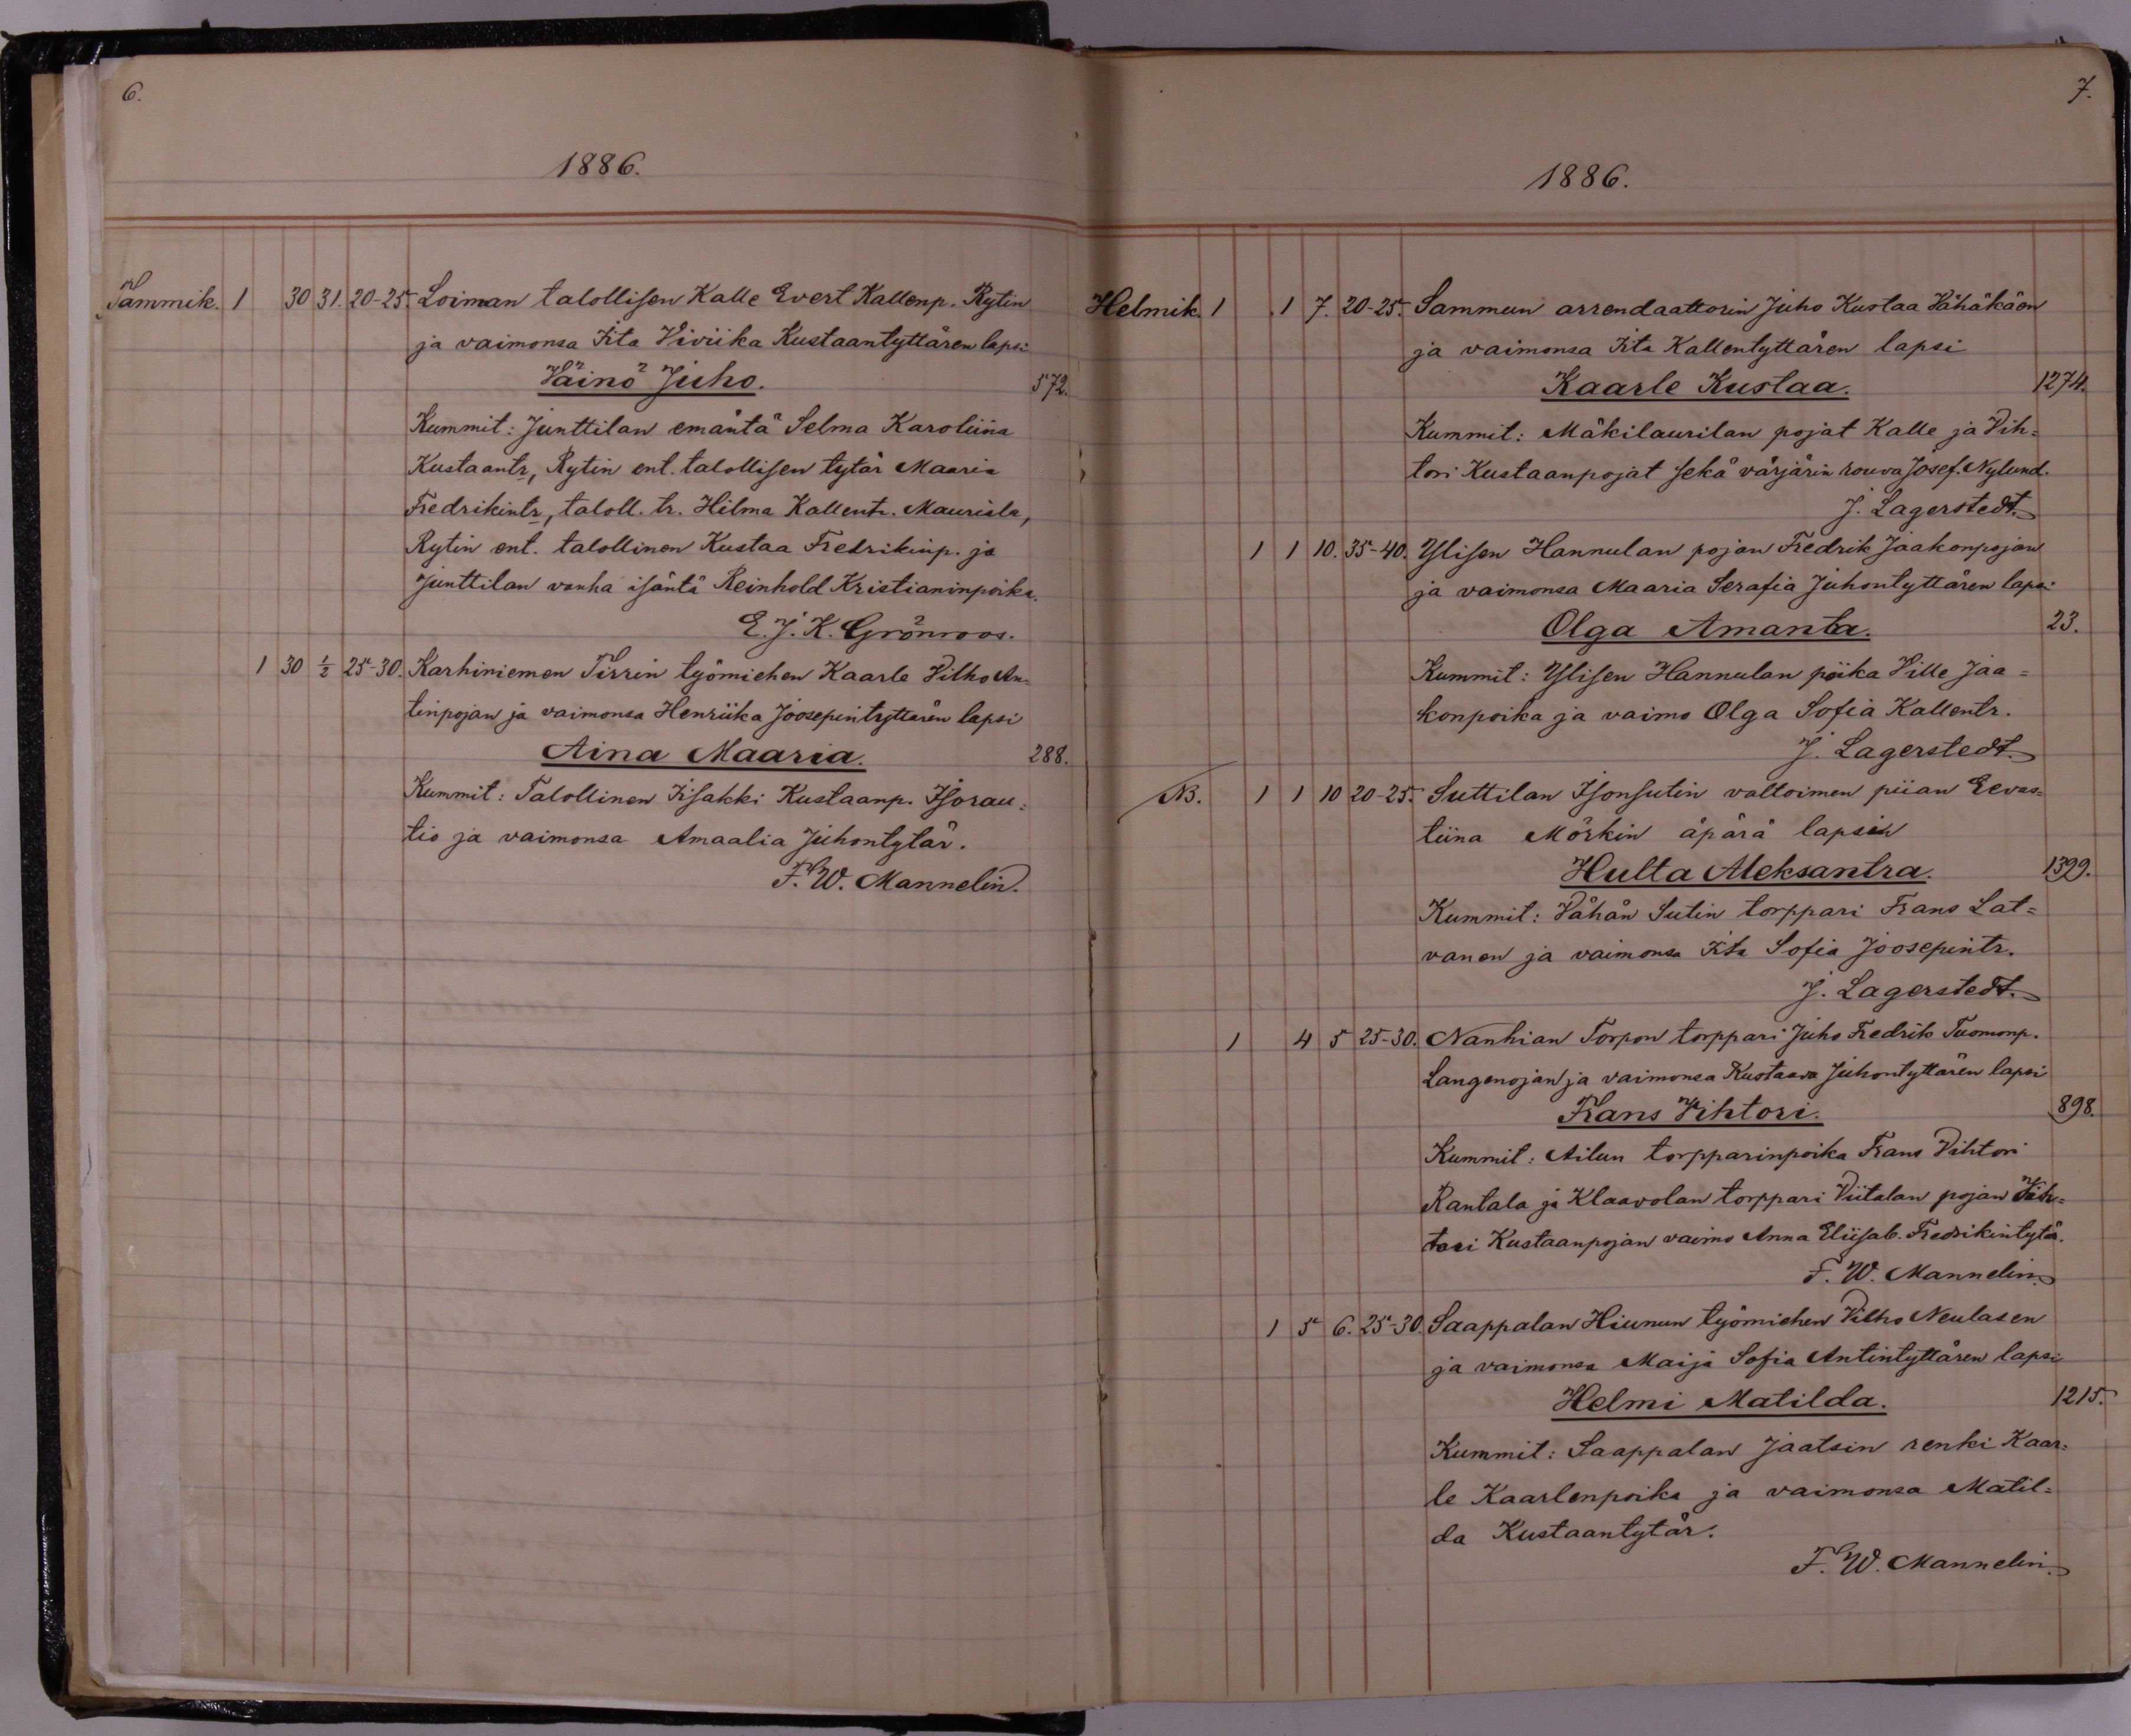 6.
1886.
Tammik. 1 30 31. 20-25. Loiman talollisen Kalle Evert Kallenp. Rytin
ja vaimonsa Iita Viviika Kustaantyttären lapsi
Väinö Juho. 572.
Kummit: Junttilan emäntä Selma Karoliina
Kustaantr, Rytin ent. talollisen tytär Maaria
Fredrikintr, taloll. tr. Hilma Kallentr. Mauriala,
Rytin ent. talollinen Kustaa Fredrikinp. ja
Junttilan vanha isäntä Reinhold Kristianinpoika.
E. J. K. Grönroos.
1 30 1/2 25-30. Karhiniemen Tirrin työmiehen Kaarle Vilho An=
tinpojan ja vaimonsa Henriika Joosepintyttären lapsi
Aina Maaria. 288.
Kummit: Talollinen Iisakki Kustaanp. Isorau=
tio ja vaimonsa Amaalia Juhontytär.
F. W. Mannelin.
7.
1886.
Helmik. 1 1 7. 20-25. Sammun arrendaattorin Juho Kustaa Vähäkäen
ja vaimonsa Iita Kallentyttären lapsi
Kaarle Kustaa. 1274.
Kummit: Mäkilaurilan pojat Kalle ja Vih=
tori Kustaanpojat sekä värjärin rouva Josef. Nylund.
J. Lagerstedt.
1 1 10. 35-40. Ylisen Hannulan pojan Fredrik Jaakonpojan
ja vaimonsa Maaria Serafia Juhontyttären lapsi
Olga Amanta. 23.
Kummit: Ylisen Hannulan poika Ville Jaa=
konpoika ja vaimo Olga Sofia Kallentr.
J. Lagerstedt.
NB. 1 1 10 20-25. Suttilan Isonsutin valtoimen piian Eevas=
tiina Mörkin äpärä lapsi
Hulta Aleksantra. 1399.
Kummit: Vähän Sutin torppari Frans Lat=
vanen ja vaimonsa Iita Sofia Joosepintr.
J. Lagerstedt.
1 4 5 25-30. Nanhian Torpon torppari Juho Fredrik Tuomonp.
Langenojan ja vaimonsa Kustaava Juhontyttären lapsi
Frans Vihtori. 898.
Kummit: Ailun torpparinpoika Frans Vihtori
Rantala ja Klaavolan torppari Viitalan pojan Vih=
tori Kustaanpojan vaimo Anna Eliisab. Fredrikintytär.
F. W. Mannelin.
1 5 6. 25-30. Saappalan Hiunun työmiehen Vilho Neulasen
ja vaimonsa Maija Sofia Antintyttären lapsi
Helmi Matilda. 1215.
Kummit: Saappalan Jaatsin renki Kaar=
le Kaarlenpoika ja vaimonsa Matil=
da Kustaantytär.
F. W. Mannelin.